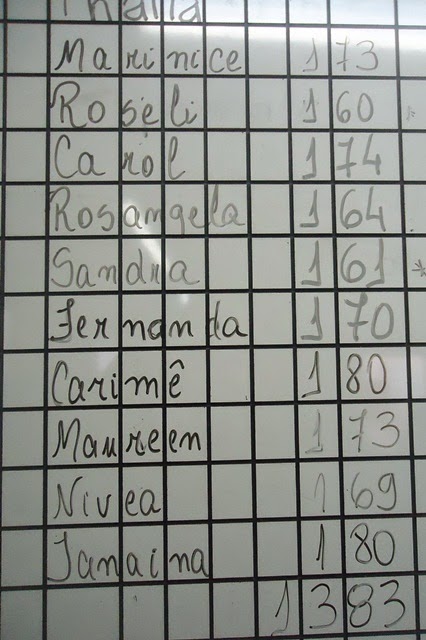 Thalia
Marinice 173
Roseli 160
Carol 174
Rosangela 164
Sandra 161 *
Fernanda 170
Carimê 180
Maureen 173
Nivea 169
Janaina 180
1383